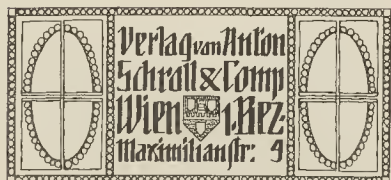 Verlag von Anton
Schroll & Comp
Wien I. Bez.
Maximilianstr: 9